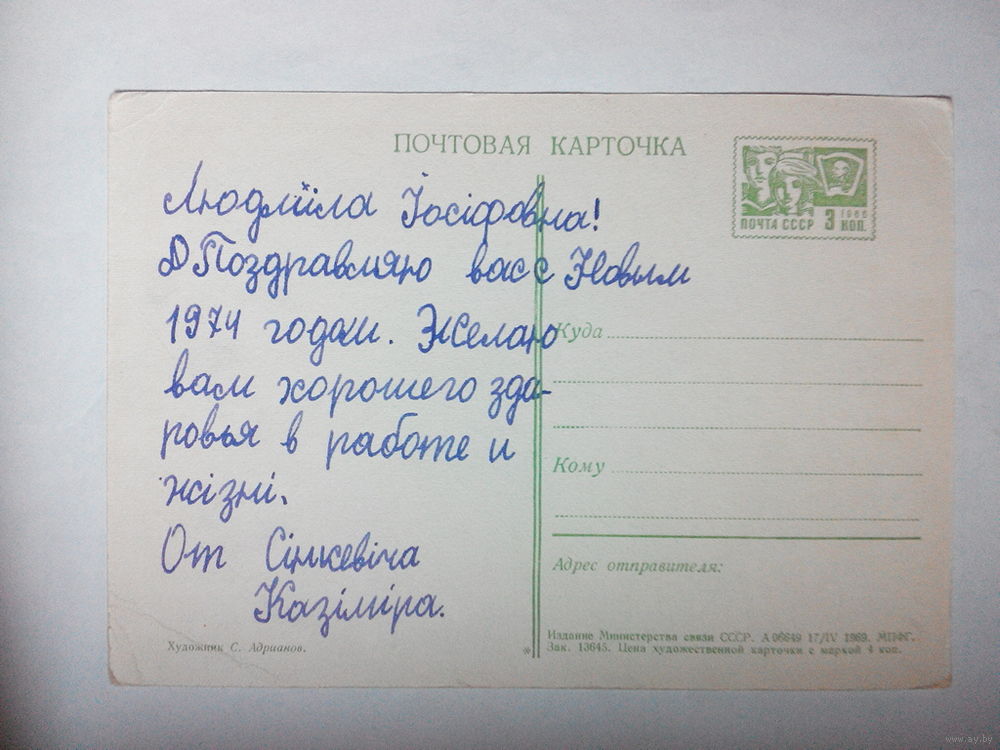 ПОЧТОВАЯ КАРТОЧКА
ПОЧТА СССР 3 КОП. 1966
Людміла Іосіфовна!
Поздравляю вас с Новым
1974 годом. Желаю
вам хорошего здо-
ровья в работе и
жізні.
От Сінкевіча
Казіміра.
Куда
Кому
Адрес отправителя:
Художник С. Адрианов.
Издание Министерства связи СССР. А 06649 17/IV 1969. МПФГ.
Зак. 13645. Цена художественной карточки с маркой 4 коп.
www.ay.by